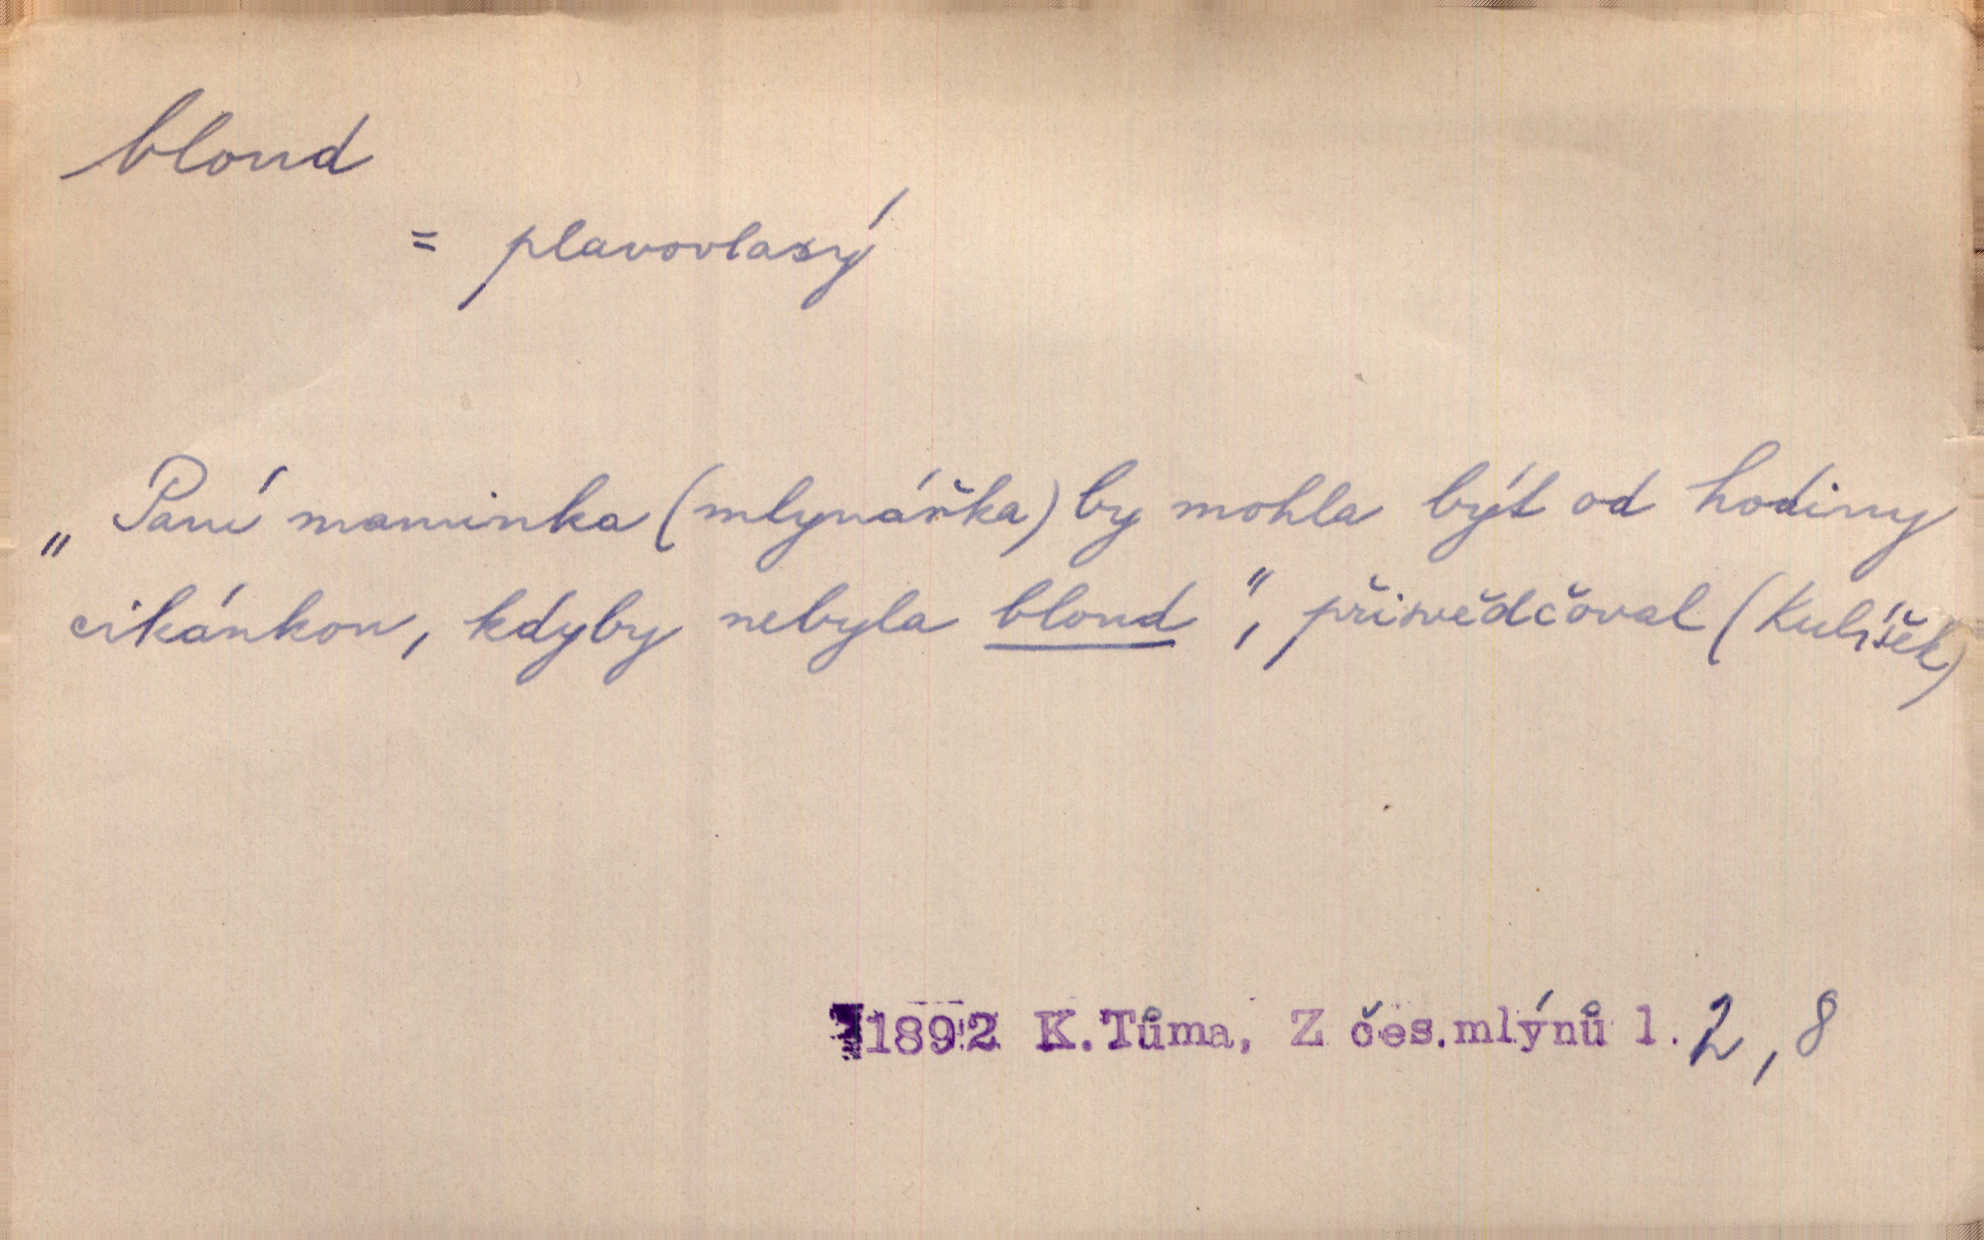 blond
= plavovlasý
„Paní maminka (mlynářka) by mohla být od hodiny
cikánkou, kdyby nebyla blond“, přisvědčoval (Kulíšek)
1892 K.Tůma, Z čes.mlýnů l. 2, 8